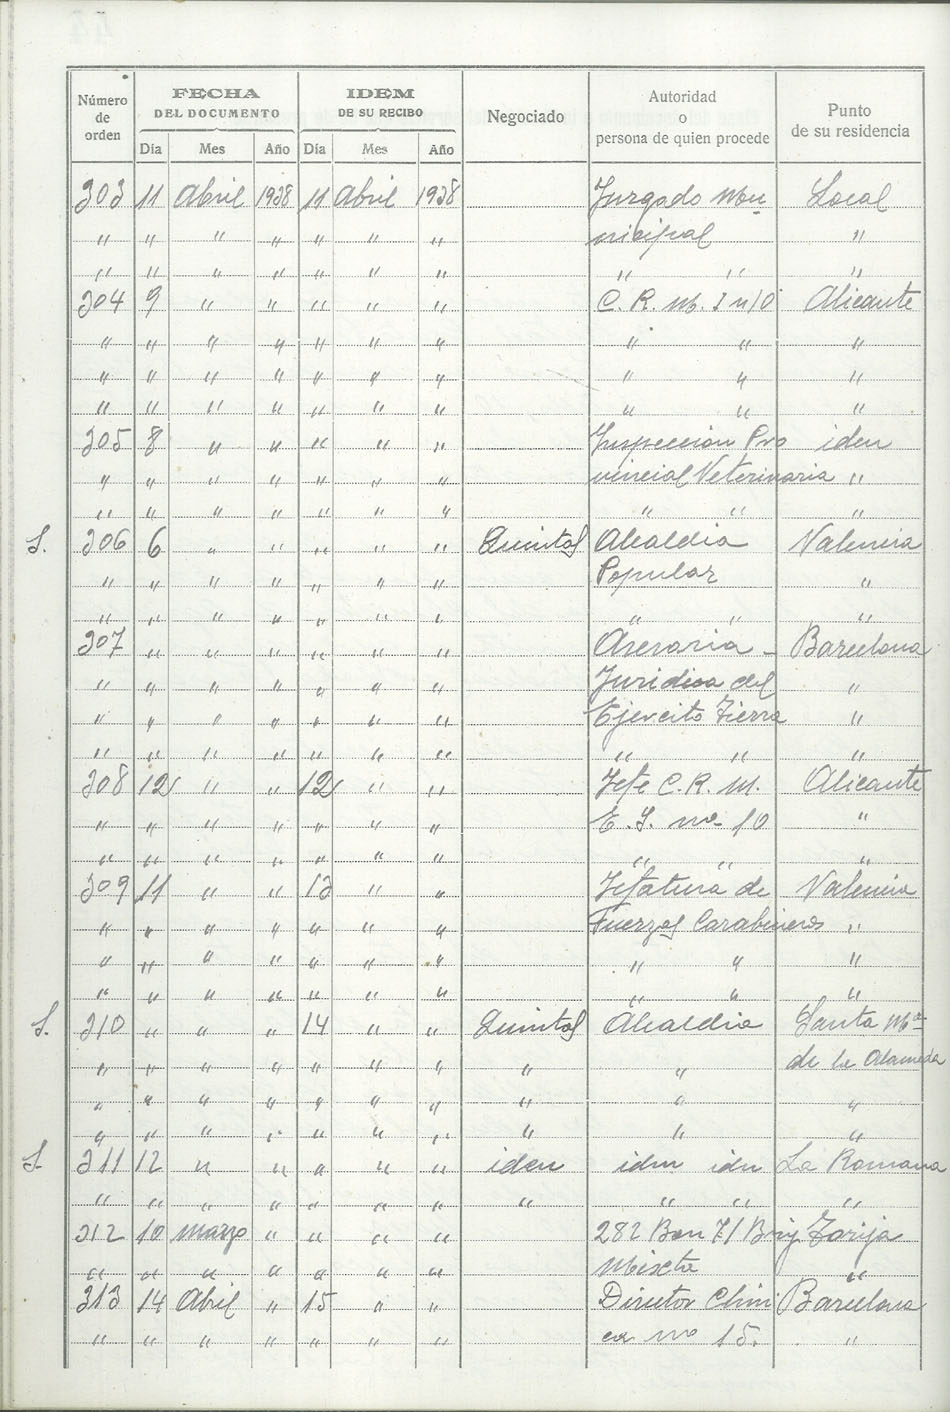 Número de orden | FECHA DEL DOCUMENTO | IDEM DE SU RECIBO | Negociado | Autoridad o persona de quien procede | Punto de su residencia
Día | Mes | Año | Día | Mes | Año
303 11 Abril 1938 11 Abril 1938 Juzgado Mu- Local
" " " " " " " nicipal "
" " " " " " " " " "
304 9 " " " " " C. R. M. I nº 10 Alicante
" " " " " " " " " "
" " " " " " " " " "
" " " " " " " " " "
305 8 " " " " " Inspeccion Pro iden
" " " " " " " vincial Veterinaria "
" " " " " " " " " "
S. 306 6 " " " " " Quintas Alcaldia Valencia
" " " " " " " Popular "
" " " " " " " " " "
307 " " " " " " Asesoria - Barcelona
" " " " " " " Juridica del "
" " " " " " " Ejercito Tierra "
" " " " " " " " " "
308 12 " " 12 " " Jefe C. R. M. Alicante
" " " " " " " E. I. nº 10 "
" " " " " " " " " "
309 11 " " 13 " " Jefatura de Valencia
" " " " " " " Fuerzas Carabineros "
" " " " " " " " " "
" " " " " " " " " "
S. 310 " " " 14 " " Quintas Alcaldia Santa Mª
" " " " " " " " " de la Alameda
" " " " " " " " " "
" " " " " " " " " "
S. 311 12 " " " " " iden iden iden La Romana
" " " " " " " " " " "
312 10 marzo " " " " 282 Bon 71 Brig Torija
" " " " " " " Mixta "
313 14 Abril " 15 " " Director Clini Barcelona
" " " " " " " ca nº 15. "